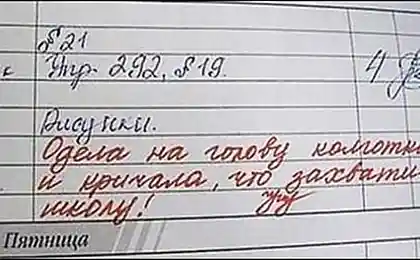 § 21
Упр. 292, § 19.
4
Рисунки.
Одела на голову колготки
и кричала, что захвати
школу!
Пятница